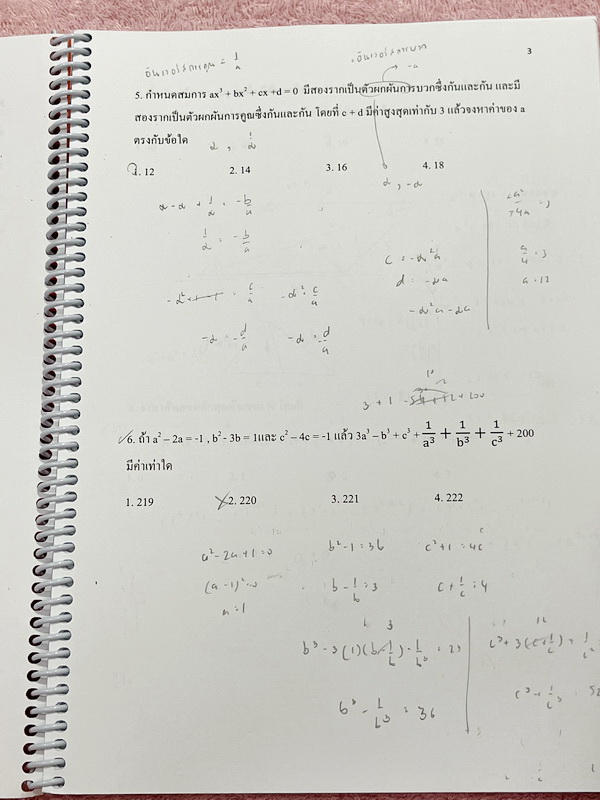 3
อินเวอร์สการคูณ = 1/a
อินเวอร์สการบวก
-a
5. กำหนดสมการ ax³ + bx² + cx +d = 0 มีสองรากเป็นตัวผกผันการบวกซึ่งกันและกัน และมี
สองรากเป็นตัวผกผันการคูณซึ่งกันและกัน โดยที่ c + d มีค่าสูงสุดเท่ากับ 3 แล้วจงหาค่าของ a
ตรงกับข้อใด
α , 1/α
1. 12 2. 14 3. 16 4. 18
α , -α
α - α + 1/α = -b/a
1/α = -b/a
c = -α²a
d = -αa
-α²a - αa
a/4 = 3
a = 12
-α² = c/a
3 + 1
6. ถ้า a² – 2a = -1 , b² - 3b = 1และ c² – 4c = -1 แล้ว 3a³ – b³ + c³ + 1/a³ + 1/b³ + 1/c³ + 200
มีค่าเท่าใด
1. 219 2. 220 3. 221 4. 222
a² - 2a + 1 = 0
(a - 1)² = 0
a = 1
b² - 1 = 3b
b - 1/b = 3
c² + 1 = 4c
c + 1/c = 4
b³ - 1/b³ = 36